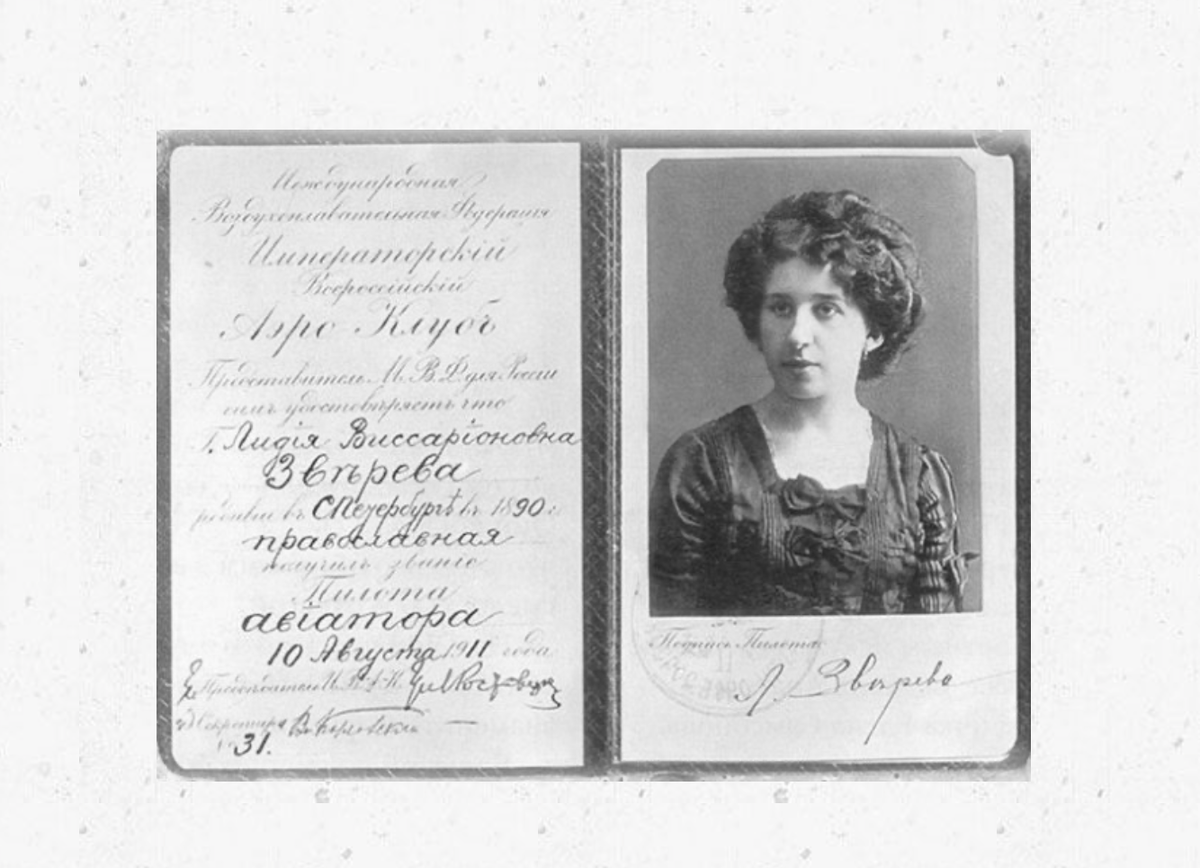 Международная
Воздухоплавательная Федерація
Императорскій
Всероссійскій
Аэро Клубъ
Представитель М. В. Ф. для Россіи
симъ удостовѣряетъ что
Г. Лидія Виссаріоновна
Звѣрева
родивш въ СПетербургѣ въ 1890 г.
православная
получилъ званіе
Пилота
авіатора
10 Августа 1911 года
Предсѣдатель И. В. А. К.
Секретарь
31.
Подпись Пилота
Л. Звѣрева